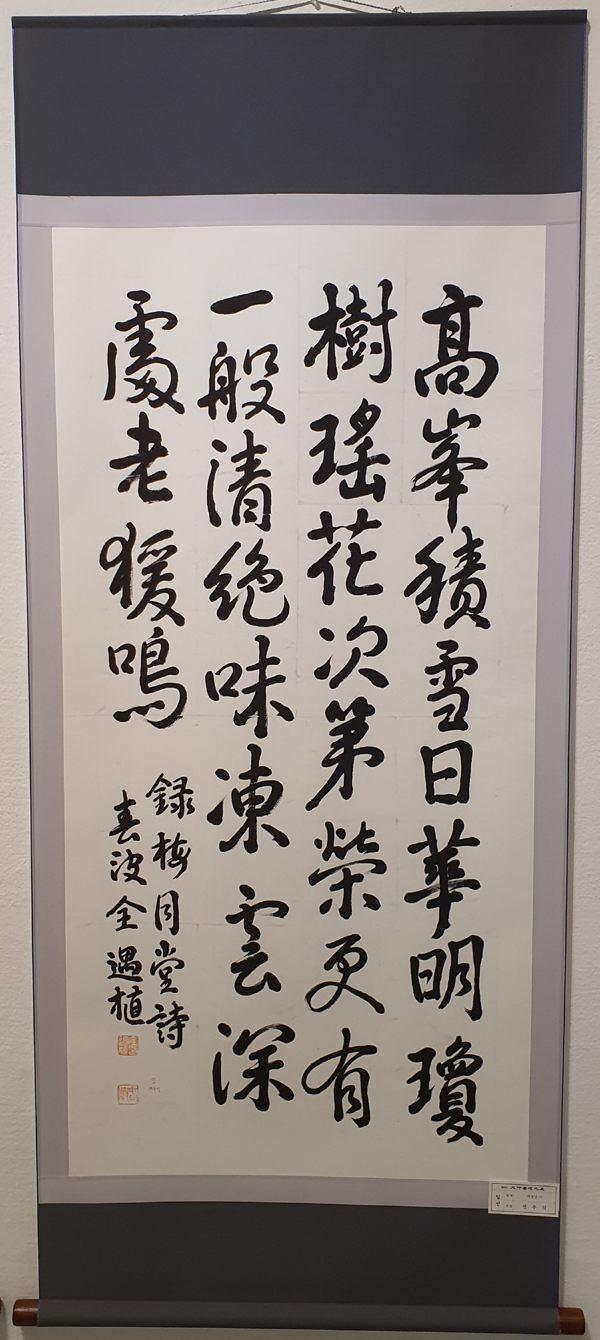 高峯積雪日華明瓊
樹瑤花次第榮更有
一般清絶味凍雲深
處老猨鳴
録梅月堂詩
春波全遇植